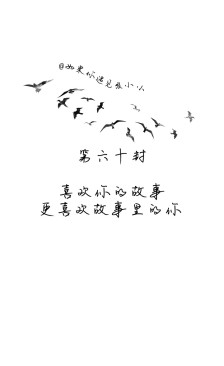 @如果你遇见张小二
第六十封
喜欢你的故事
更喜欢故事里的你